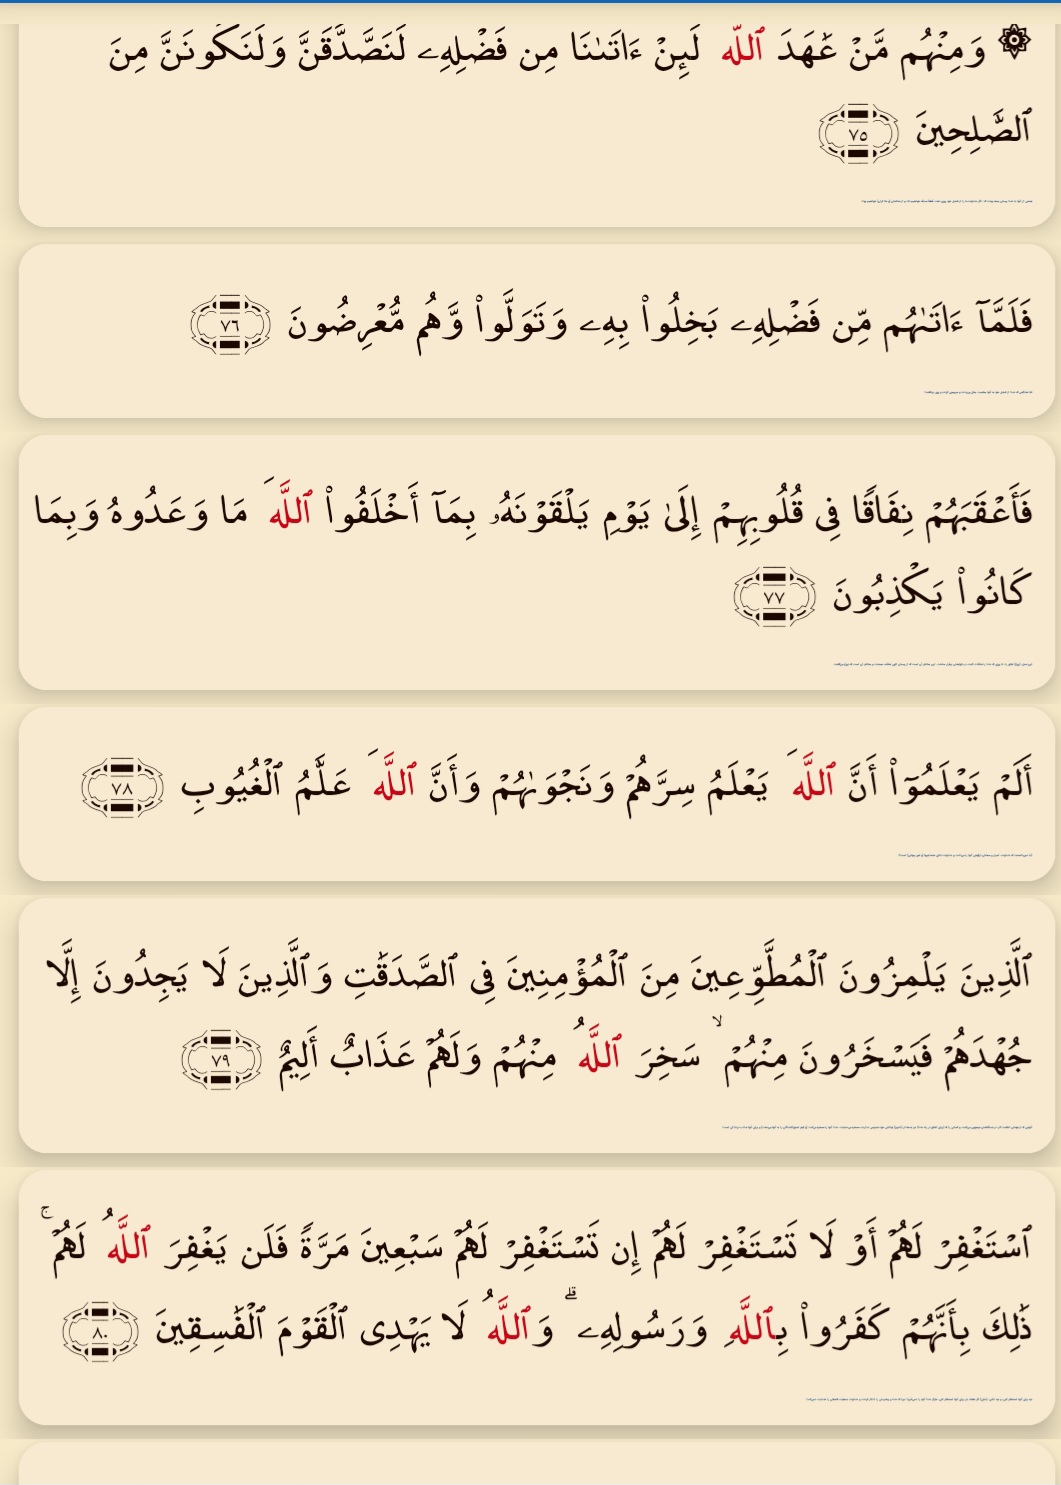 ۞ وَمِنۡهُم مَّنۡ عَٰهَدَ ٱللَّهَ لَئِنۡ ءَاتَىٰنَا مِن فَضۡلِهِۦ لَنَصَّدَّقَنَّ وَلَنَكُونَنَّ مِنَ
ٱلصَّٰلِحِينَ ٧٥
فَلَمَّآ ءَاتَىٰهُم مِّن فَضۡلِهِۦ بَخِلُواْ بِهِۦ وَتَوَلَّواْ وَّهُم مُّعۡرِضُونَ ٧٦
فَأَعۡقَبَهُمۡ نِفَاقٗا فِي قُلُوبِهِمۡ إِلَىٰ يَوۡمِ يَلۡقَوۡنَهُۥ بِمَآ أَخۡلَفُواْ ٱللَّهَ مَا وَعَدُوهُ وَبِمَا
كَانُواْ يَكۡذِبُونَ ٧٧
أَلَمۡ يَعۡلَمُوٓاْ أَنَّ ٱللَّهَ يَعۡلَمُ سِرَّهُمۡ وَنَجۡوَىٰهُمۡ وَأَنَّ ٱللَّهَ عَلَّٰمُ ٱلۡغُيُوبِ ٧٨
ٱلَّذِينَ يَلۡمِزُونَ ٱلۡمُطَّوِّعِينَ مِنَ ٱلۡمُؤۡمِنِينَ فِي ٱلصَّدَقَٰتِ وَٱلَّذِينَ لَا يَجِدُونَ إِلَّا
جُهۡدَهُمۡ فَيَسۡخَرُونَ مِنۡهُمۡۙ سَخِرَ ٱللَّهُ مِنۡهُمۡ وَلَهُمۡ عَذَابٌ أَلِيمٌ ٧٩
ٱسۡتَغۡفِرۡ لَهُمۡ أَوۡ لَا تَسۡتَغۡفِرۡ لَهُمۡ إِن تَسۡتَغۡفِرۡ لَهُمۡ سَبۡعِينَ مَرَّةٗ فَلَن يَغۡفِرَ ٱللَّهُ لَهُمۡۚ
ذَٰلِكَ بِأَنَّهُمۡ كَفَرُواْ بِٱللَّهِ وَرَسُولِهِۦۗ وَٱللَّهُ لَا يَهۡدِي ٱلۡقَوۡمَ ٱلۡفَٰسِقِينَ ٨٠